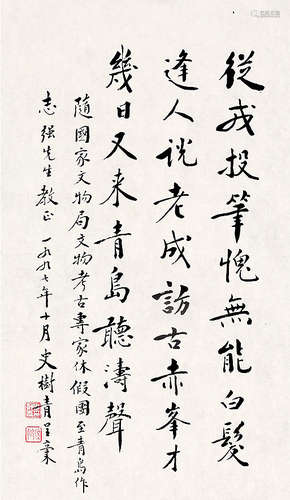 從戎投筆愧無能白髮
逢人說老成訪古赤峯才
幾日又来青島聽濤聲
隨國家文物局文物考古專家休假團至青島作
志强先生教正 一九九七年十月史樹青呈稾